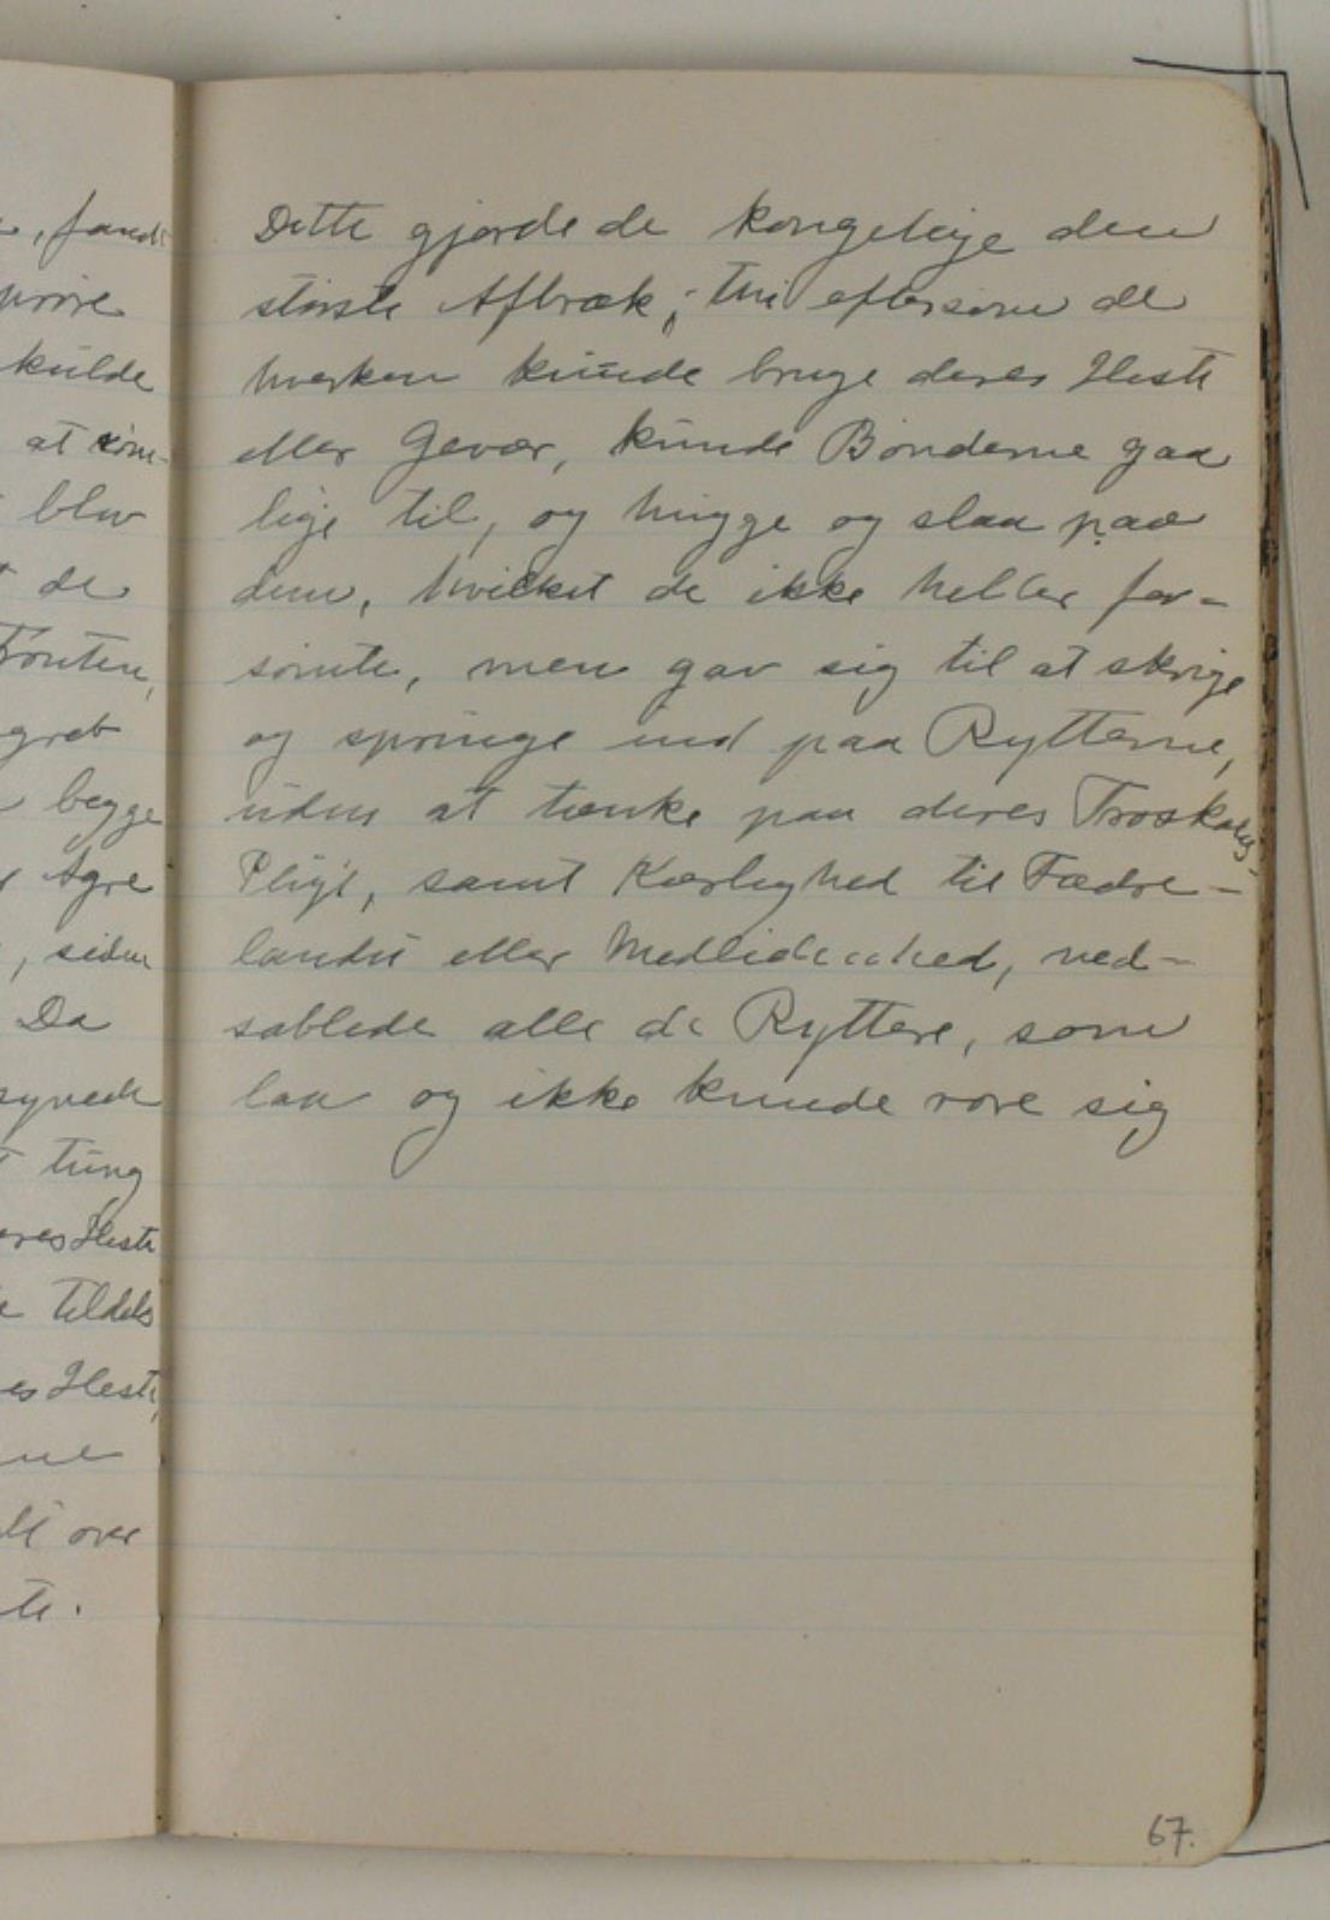 , fandt
kulde
at
blev
de
Fronten,
greb
begge
Agre
, siden
Da
tung
eres Heste
tildels
es Heste,
over
Dette gjorde de kongelige den
største Afbræk; thi eftersom de
hverken kunde bruge deres Heste
eller Gevær, kunde Bønderne gaa
lige til, og hugge og slaa paa
dem, hvilket de ikke heller for-
sømte, men gav sig til at skrige
og springe ind paa Rytterne,
uden at tænke paa deres Troskabs-
Pligt, samt Kærlighed til Fædre-
landet eller Medlidenhed, ned-
sablede alle de Ryttere, som
laa og ikke kunde røre sig
67.